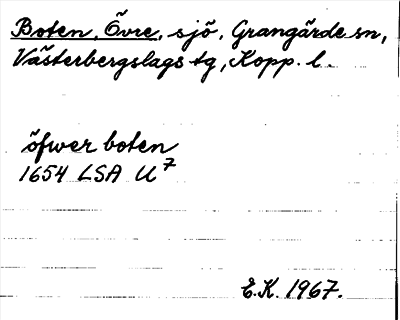 Boten, Övre, sjö, Grangärde sn,
Västerbergslags tg, Kopp. l.
öfwer boten
1654 LSA U 7
E.K. 1967.